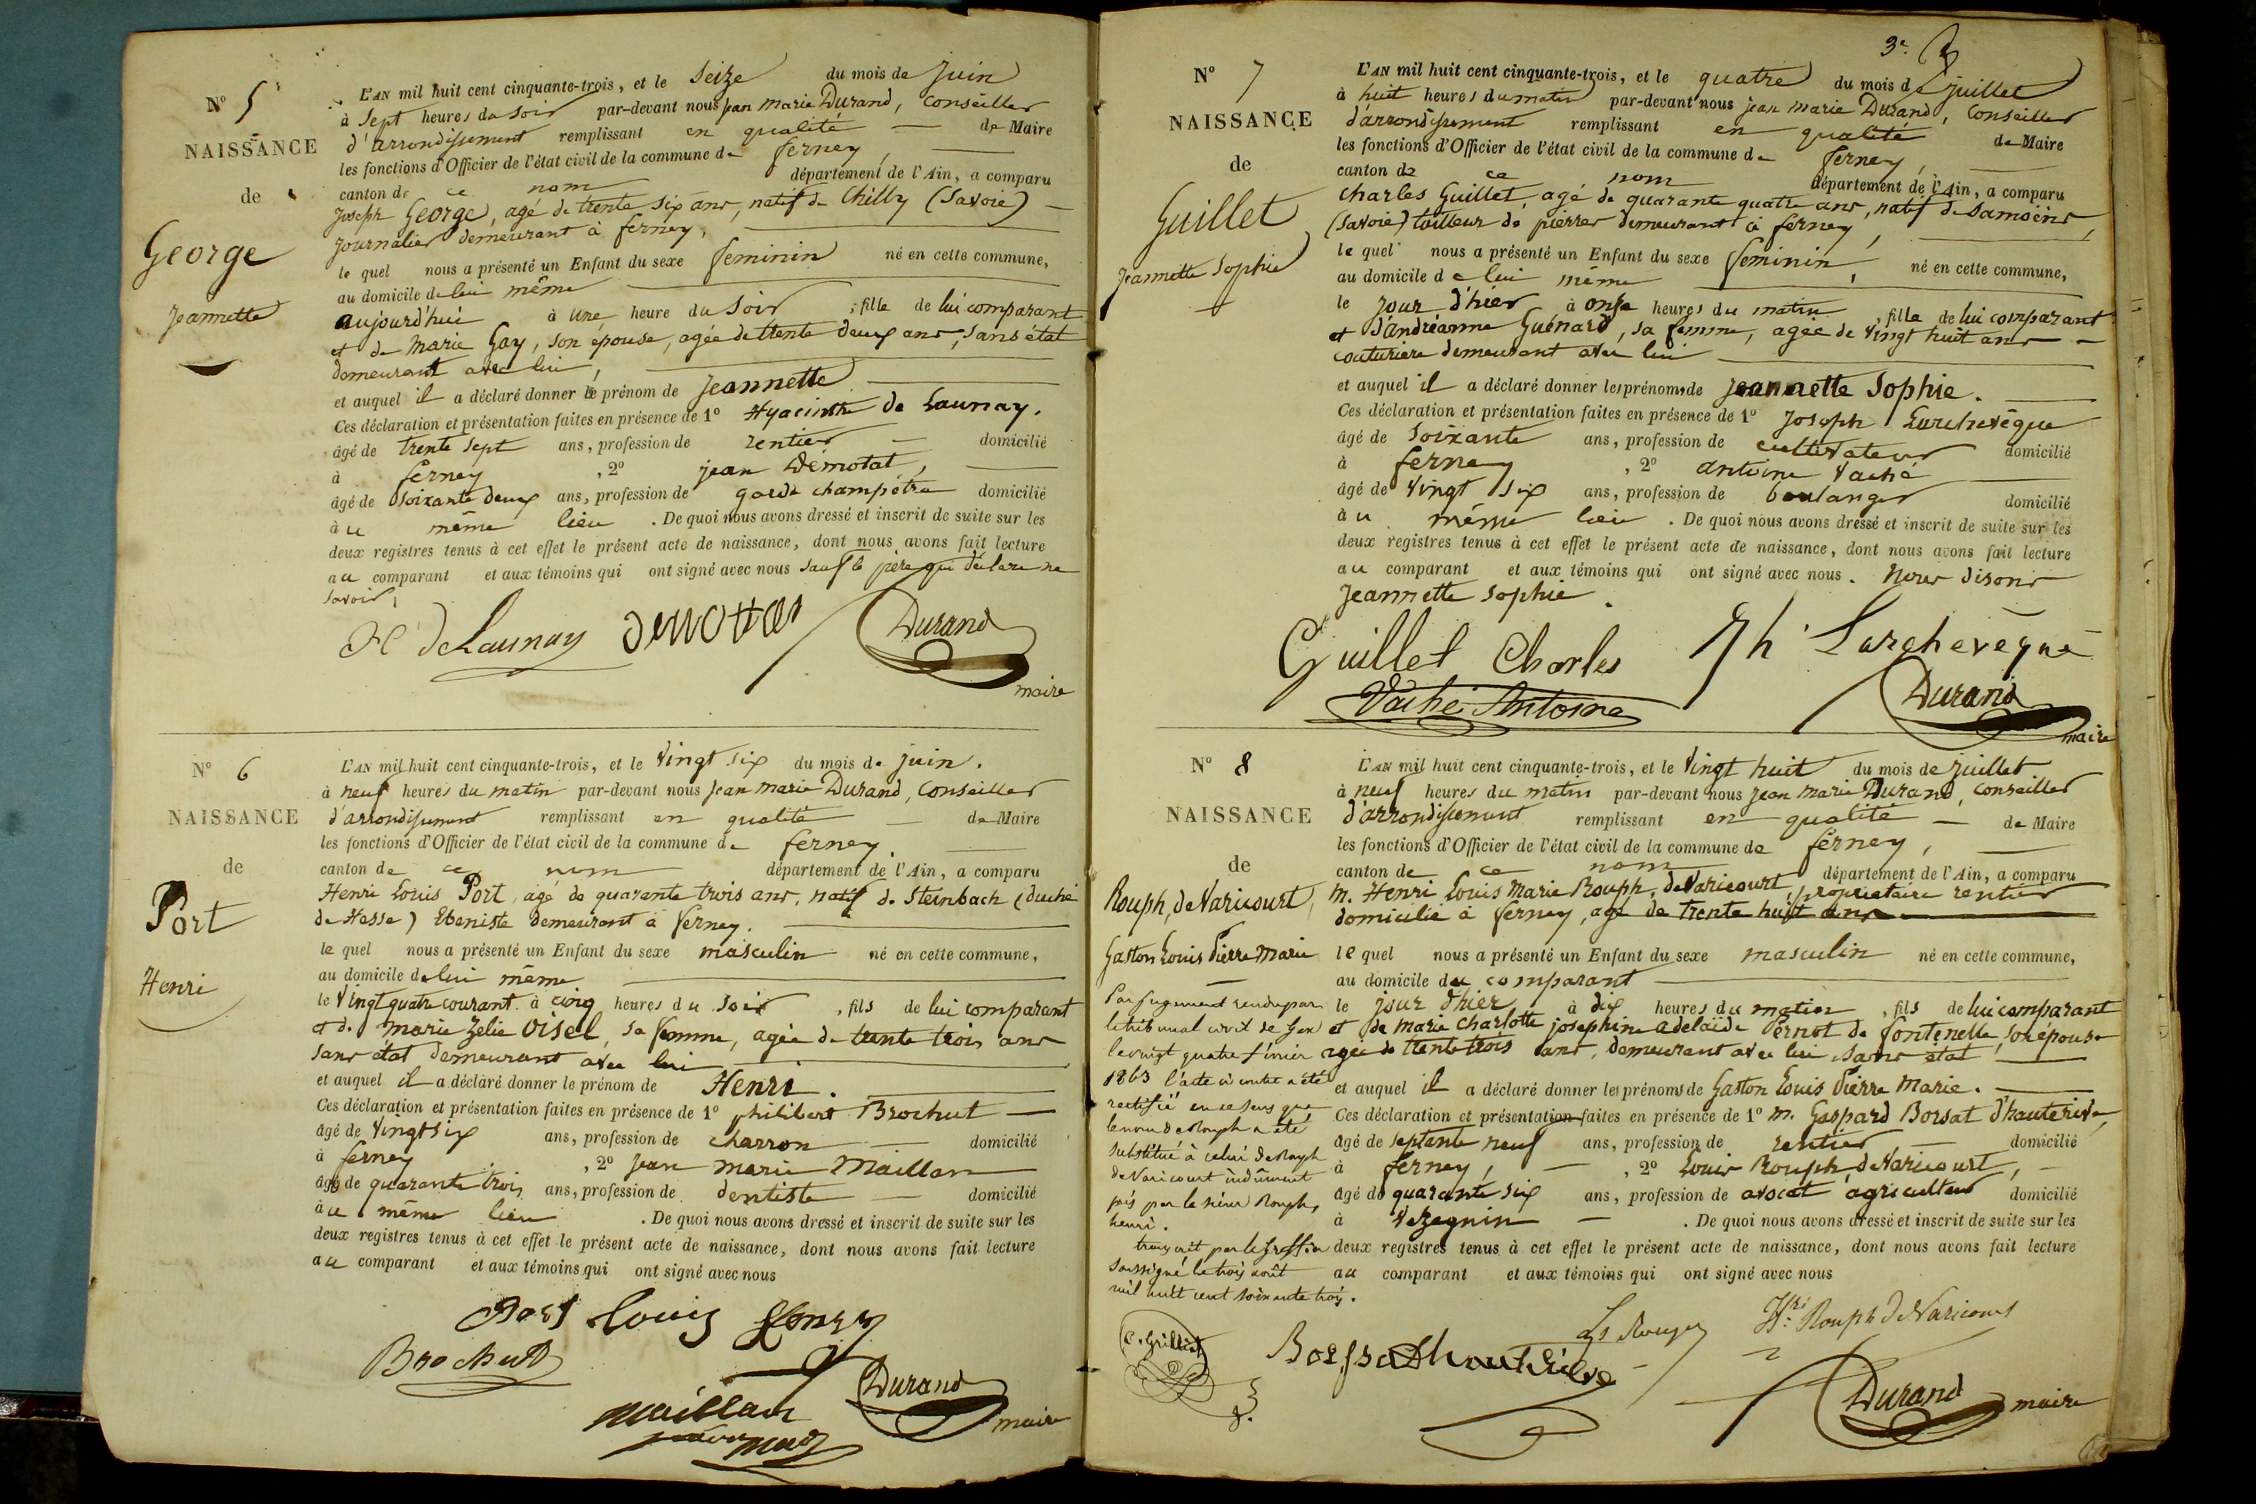 N° 5
NAISSANCE
de
George
Jeannette
L'AN mil huit cent cinquante-trois, et le seize du mois de juin
à sept heures du soir par-devant nous jean marie Durand, Conseiller
d'arrondissement remplissant en qualité de Maire
les fonctions d'Officier de l'état civil de la commune de ferney,
canton de ce nom département de l'Ain, a comparu
joseph George, agé de trente six ans, natif de Chilly (Savoie)
journalier demeurant à ferney,
le quel nous a présenté un Enfant du sexe feminin né en cette commune,
au domicile de lui même
aujourd'hui à une heure du soir, fille de lui comparant
et de marie Gay, son épouse, agée de trente deux ans, sans état
demeurant avec lui,
et auquel il a déclaré donner le prénom de jeannette
Ces déclaration et présentation faites en présence de 1° Hyacinthe de Launay,
âgé de trente sept ans, profession de rentier domicilié
à ferney, 2° jean Démotat,
âgé de soixante deux ans, profession de garde champêtre domicilié
au même lieu. De quoi nous avons dressé et inscrit de suite sur les
deux registres tenus à cet effet le présent acte de naissance, dont nous avons fait lecture
au comparant et aux témoins qui ont signé avec nous sauf le père qui déclare ne
savoir,
H de Launay Demottas Durand
maire
N° 6
NAISSANCE
de
Port
Henri
L'AN mil huit cent cinquante-trois, et le vingt six du mois de juin.
à neuf heures du matin par-devant nous jean marie Durand, Conseiller
d'arrondissement remplissant en qualité de Maire
les fonctions d'Officier de l'état civil de la commune de ferney
canton de ce nom département de l'Ain, a comparu
Henri Louis Port, agé de quarante trois ans, natif de Steinbach (duché
de Hesse) Ebeniste demeurant à ferney.
le quel nous a présenté un Enfant du sexe masculin né en cette commune,
au domicile de lui même
le vingt quatre courant à cinq heures du soir, fils de lui comparant
et de marie Zelie Oisel, sa femme, agée de trente trois ans
sans état demeurant avec lui
et auquel il a déclaré donner le prénom de Henri.
Ces déclaration et présentation faites en présence de 1° philibert Brochut
âgé de vingt six ans, profession de charron domicilié
à ferney, 2° jean marie Maillan
âgé de quarante trois ans, profession de dentiste domicilié
au même lieu. De quoi nous avons dressé et inscrit de suite sur les
deux registres tenus à cet effet le présent acte de naissance, dont nous avons fait lecture
au comparant et aux témoins qui ont signé avec nous
Port Louis Henry
Brochut
Maillan
Durand
maire
3e
N° 7
NAISSANCE
de
Guillet
Jeannette Sophie
L'AN mil huit cent cinquante-trois, et le quatre du mois de juillet
à huit heures du matin par-devant nous jean marie Durand, Conseiller
d'arrondissement remplissant en qualité de Maire
les fonctions d'Officier de l'état civil de la commune de ferney,
canton de ce nom département de l'Ain, a comparu
Charles Guillet, agé de quarante quatre ans, natif de Samoëns
(Savoie) tailleur de pierres demeurant à ferney,
le quel nous a présenté un Enfant du sexe feminin, né en cette commune,
au domicile de lui même
le jour d'hier à onse heures du matin, fille de lui comparant
et d'andréanne Guénard, sa femme, agée de vingt huit ans
couturiere demeurant avec lui
et auquel il a déclaré donner les prénoms de jeannette Sophie.
Ces déclaration et présentation faites en présence de 1° joseph Larchevêque
âgé de soixante ans, profession de cultivateur domicilié
à ferney, 2° antoine Vaché
âgé de vingt six ans, profession de boulanger domicilié
au même lieu. De quoi nous avons dressé et inscrit de suite sur les
deux registres tenus à cet effet le présent acte de naissance, dont nous avons fait lecture
au comparant et aux témoins qui ont signé avec nous. Nous disons
jeannette sophie.
Guillet Charles Jh Larchevêque
Vaché Antoine Durand
maire
N° 8
NAISSANCE
de
Rouph, de Varicourt,
Gaston Louis Pierre Marie
Par jugement rendu par
le tribunal civil de Gex
le vingt quatre février
1863 l'acte ci contre a été
rectifié en ce sens que
le nom de Rouph a été
substitué à celui de Rouph
de Varicourt indûment
pris par le sieur Rouph,
henri.
transcrit par le Greffier
soussigné le trois août
mil huit cent soixante trois.
L'AN mil huit cent cinquante-trois, et le vingt huit du mois de juillet
à neuf heures du matin par-devant nous jean marie Durand, Conseiller
d'arrondissement remplissant en qualité de Maire
les fonctions d'Officier de l'état civil de la commune de ferney,
canton de ce nom département de l'Ain, a comparu
M. Henri Louis Marie Rouph, de Varicourt, propriétaire rentier
domicilié à ferney, agé de trente huit ans
le quel nous a présenté un Enfant du sexe masculin né en cette commune,
au domicile du comparant
le jour d'hier à dix heures du matin, fils de lui comparant
et de marie Charlotte josephine adelaïde Pernot de fontenelle, son épouse
agée de trente trois ans, demeurant avec lui sans état
et auquel il a déclaré donner les prénoms de Gaston Louis Pierre Marie.
Ces déclaration et présentation faites en présence de 1° M. Gaspard Borsat d'hauterive,
âgé de septante neuf ans, profession de rentier domicilié
à ferney, 2° Louis Rouph de Varicourt,
âgé de quarante six ans, profession de avocat agriculteur domicilié
à Vezegnin. De quoi nous avons dressé et inscrit de suite sur les
deux registres tenus à cet effet le présent acte de naissance, dont nous avons fait lecture
au comparant et aux témoins qui ont signé avec nous
Hri Rouph de Varicourt
Borssat d'hauterive
Durand maire